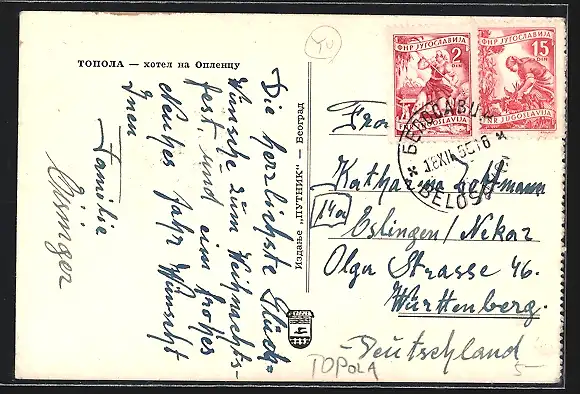 ТОПОЛА — хотел на Опленцу
Die herzlichste Glück-
Wünsche zum Weihnachts-
fest, und ein frohes
Neuhes Jahr Wünscht
Inen
Familie
Издање „ПУТНИК“ — Београд
ФНР ЈУГОСЛАВИЈА
2
DIN
FNR JUGOSLAVIJA
ФНР ЈУГОСЛАВИЈА
15
DIN
FNR JUGOSLAVIJA
YU
Frau
Katharina
14a
Eslingen/Nekar
Olga Strasse 46.
Württenberg.
Deutschland
TOPOLA
5-